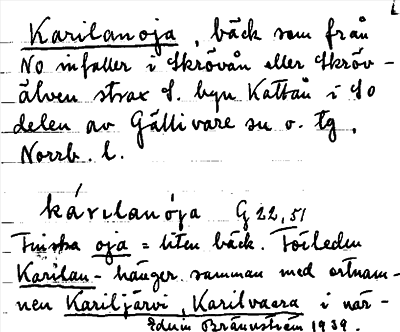 Karilanoja, bäck som från
NO infaller i Skrövån eller Skröv-
älven strax S. byn Kattån i SO
delen av Gällivare sn o. tg,
Norrb. l.
kárilanója G 22,51
Finska oja = liten bäck. Förleden
Karilan- hänger samman med ortnam-
nen Kariljärvi, Karilvaara i när-
Edvin Brännström 1939.